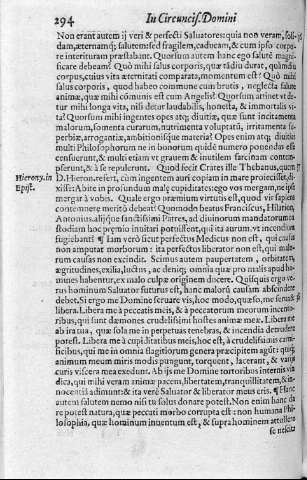 294 In Circuncis. Domini
Non erant autem ij veri & perfecti Saluatores: quia non veram, soli-
dam, æternamq; salutem sed fragilem, caducam, & cum ipso corpo-
re interituram præstabant. Quorsum autem hanc ego salutē magni-
ficare debeam? Quò mihi salus corporis, quæ tādiu durat, quandiu
corpus, cuius vita æternitati comparata, momentum est? Quò mihi
salus corporis, quod habeo commune cum brutis, neglecta salute
animæ, quæ mihi cōmunis est cum Angelis? Quorsum attinet vt de-
tur mihi longa vita, nisi detur laudabilis, honesta, & immortalis vi-
ta? Quorsum mihi ingentes opes atq; diuitiæ, quæ sunt incitamenta
malorum, fomenta curarum, nutrimenta voluptatis, irritamenta su-
perbiæ, arrogantiæ, ambitionisq; materia? Opes enim atq; diuitias
multi Philosophorum ne in bonorum quidē numero ponendas esse
censuerunt, & multi etiam vt grauem & inutilem sarcinam contem-
pserunt, & à se repulerunt. Quod fecit Crates ille Thebanus, quem
Hierony. in D. Hieron. refert, cùm ingentem auri copiam in mare proiecisset, di-
Epist. xisse: Abite in profundum malę cupiditates: ego vos mergam, ne ipse
mergar à vobis. Quale ergo præmium virtutis est, quod vir sapiens
contemnere meritò debeat? Quomodo beatus Franciscus, Hilarion,
Antonius, alijque sanctissimi Patres, ad diuinorum mandatorum
studiam hoc præmio inuitari potuissent, qui ita aurum, vt incendium
fugiebant? ¶ Iam verò sicut perfectus Medicus non est, qui causas
non amputat morborum: ita perfectus liberator non est, qui malo-
rum causas non excindit. Scimus autem paupertatem, orbitatem,
ægritudines, exilia, luctus, ac deniq; omnia quæ pro malis apud ho-
mines habentur, ex malo culpæ originem ducere. Quisquis ergo ve-
rus hominum Saluator futurus est, hanc malorū causam abscindere
debet. Si ergo me Domine seruare vis, hoc modo, quæso, me serua &
libera. Libera me à peccatis meis, & à peccatorum meorum incento-
ribus, qui sunt dæmones crudelissimi hostes animæ meæ. Libera me
ab ira tua, quæ sola me in perpetuas tenebras, & incendia detrudere
potest. Libera me à cupiditatibus meis, hoc est, à crudelissimis carni-
ficibus, qui me in omnia flagitiorum genera præcipitem agūt: quiq;
animum meum miris modis pungunt, torquent, lacerant, & varijs
curis viscera mea exedunt. Ab ijs me Domine tortoribus internis vin-
dica, qui mihi veram animæ pacem, libertatem, tranquillitatem, & in-
nocentiā adimunt: & ita verè Saluator & liberator meus eris. ¶ Hanc
autem salutem nemo nisi tu solus donare potest. Non enim hanc da-
re potest natura, quæ peccati morbo corrupta est: non humana Phi-
losophia, quæ hominum inuentum est, & supra hominem attollere
se nescit